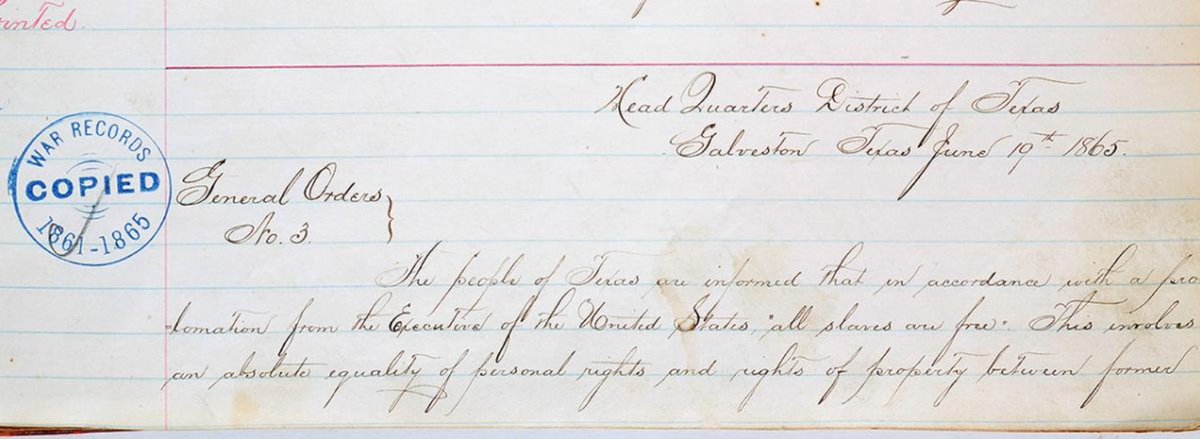 inted.
Head Quarters District of Texas
Galveston Texas June 19th 1865.
WAR RECORDS
COPIED
1861-1865
General Orders
No. 3.
The people of Texas are informed that in accordance with a pro
lamation from the Executive of the United States, "all slaves are free." This involves
an absolute equality of personal rights and rights of property between former